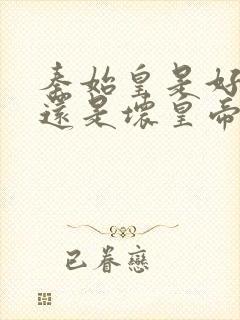 秦始皇是好
還是壞皇帝
已眷戀